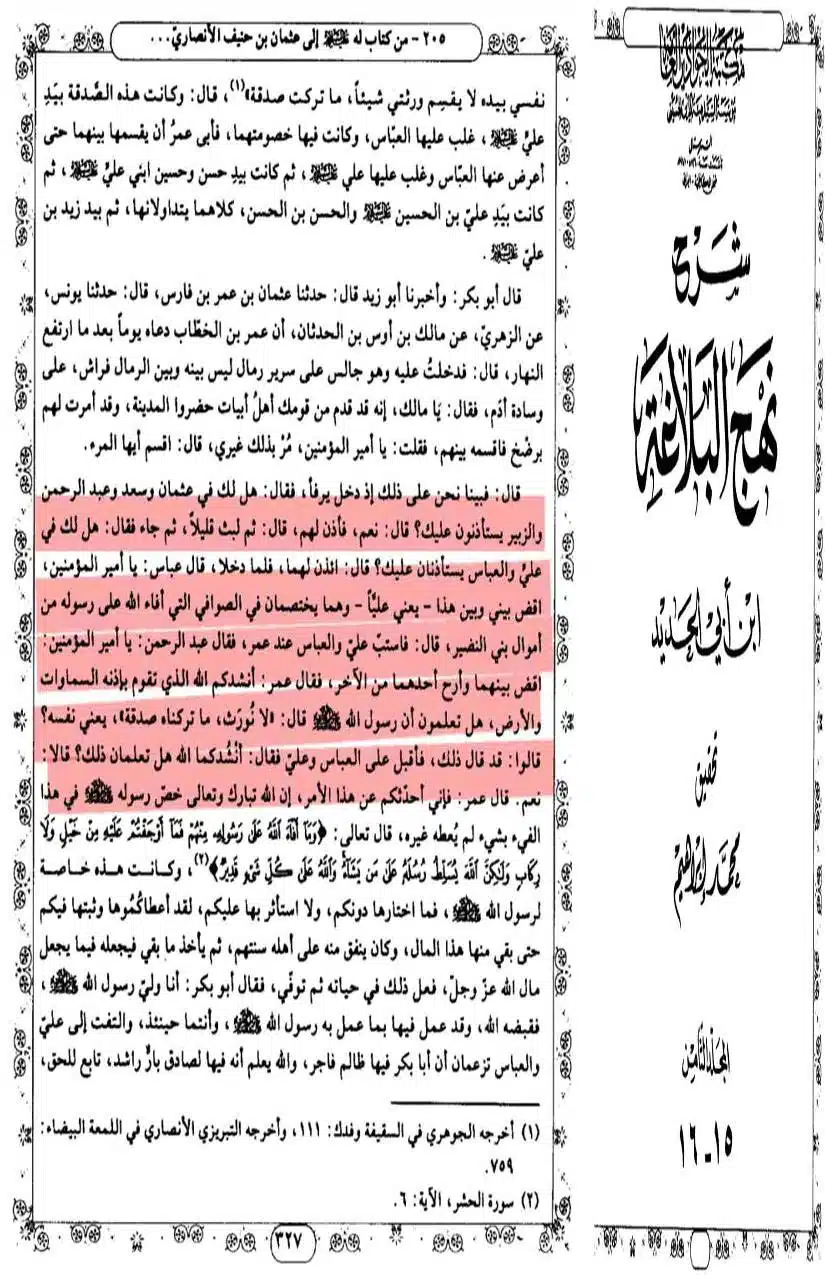 ٢٠٥ - من كتاب له ﷺ إلى عثمان بن حنيف الأنصاريّ...
نفسي بيده لا يقسِم ورثتي شيئاً، ما تركت صدقة»(١)، قال: وكانت هذه الصَّدقة بيَدِ
عليٍّ ﷺ، غلب عليها العبّاس، وكانت فيها خصومتهما، فأبى عمرُ أن يقسمها بينهما حتى
أعرض عنها العباس وغلب عليها علي ﷺ، ثم كانت بيدِ حسن وحسين ابني عليّ ﷺ، ثم
كانت بيَدِ عليّ بن الحسين ﷺ والحسن بن الحسن، كلاهما يتداولانها، ثم بيد زيد بن
عليّ ﷺ.
قال أبو بكر: وأخبرنا أبو زيد قال: حدثنا عثمان بن عمر بن فارس، قال: حدثنا يونس،
عن الزهريّ، عن مالك بن أوس بن الحدثان، أن عمر بن الخطّاب دعاه يوماً بعد ما ارتفع
النهار، قال: فدخلتُ عليه وهو جالس على سرير رمال ليس بينه وبين الرمال فراش، على
وسادة أدَم، فقال: يَا مالك، إنه قد قدم من قومك أهلُ أبيات حضروا المدينة، وقد أمرت لهم
برضْخ فاقسمه بينهم، فقلت: يا أمير المؤمنين، مُرْ بذلك غيري، قال: اقسم أيها المرء.
قال: فبينا نحن على ذلك إذ دخل يرفأ، فقال: هل لك في عثمان وسعد وعبد الرحمن
والزبير يستأذنون عليك؟ قال: نعم، فأذن لهم، قال: ثم لبث قليلاً، ثم جاء فقال: هل لك في
عليٍّ والعباس يستأذنان عليك؟ قال: ائذن لهما، فلما دخلا، قال عباس: يا أمير المؤمنين،
اقض بيني وبين هذا - يعني عليًّا - وهما يختصمان في الصوافي التي أفاء الله على رسوله من
أموال بني النضير، قال: فاستبّ عليّ والعباس عند عمر، فقال عبد الرحمن: يا أمير المؤمنين:
اقض بينهما وأرح أحدهما من الآخر، فقال عمر: أنشدكم الله الذي تقوم بإذنه السماوات
والأرض، هل تعلمون أن رسول الله ﷺ قال: «لا نُورَث، ما تركناه صدقة»، يعني نفسه؟
قالوا: قد قال ذلك، فأقبل على العباس وعليّ فقال: أنْشُدكما الله هل تعلمان ذلك؟ قالا:
نعم. قال عمر: فإني أحدّثكم عن هذا الأمر، إن الله تبارك وتعالى خصّ رسوله ﷺ في هذا
الفيء بشيء لم يُعطه غيره، قال تعالى: ﴿وَمَا أَفَاءَ اللَّهُ عَلَىٰ رَسُولِهِ مِنْهُمْ فَمَا أَوْجَفْتُمْ عَلَيْهِ مِنْ خَيْلٍ وَلَا
رِكَابٍ وَلَٰكِنَّ اللَّهَ يُسَلِّطُ رُسُلَهُ عَلَىٰ مَن يَشَاءُ وَاللَّهُ عَلَىٰ كُلِّ شَيْءٍ قَدِيرٌ﴾(٢)، وكانت هذه خاصة
لرسول الله ﷺ، فما اختارها دونكم، ولا استأثر بها عليكم، لقد أعطاكُمُوها وثبتها فيكم
حتى بقي منها هذا المال، وكان ينفق منه على أهله سنتهم، ثم يأخذ ما بقي فيجعله فيما يجعل
مال الله عزّ وجلّ، فعل ذلك في حياته ثم توفّي، فقال أبو بكر: أنا وليّ رسول الله ﷺ،
فقبضه الله، وقد عمل فيها بما عمل به رسول الله ﷺ، وأنتما حينئذ، والتفت إلى عليّ
والعباس تزعمان أن أبا بكر فيها ظالم فاجر، والله يعلم أنه فيها لصادق بارٌّ راشد، تابع للحق،
(١) أخرجه الجوهري في السقيفة وفدك: ١١١، وأخرجه التبريزي الأنصاري في اللمعة البيضاء:
٧٥٩.
(٢) سورة الحشر، الآية: ٦.
٣٢٧
شرح
نهج البلاغة
ابن أبي الحديد
تحقيق
محمد إبراهيم
المجلد الثامن
١٥-١٦